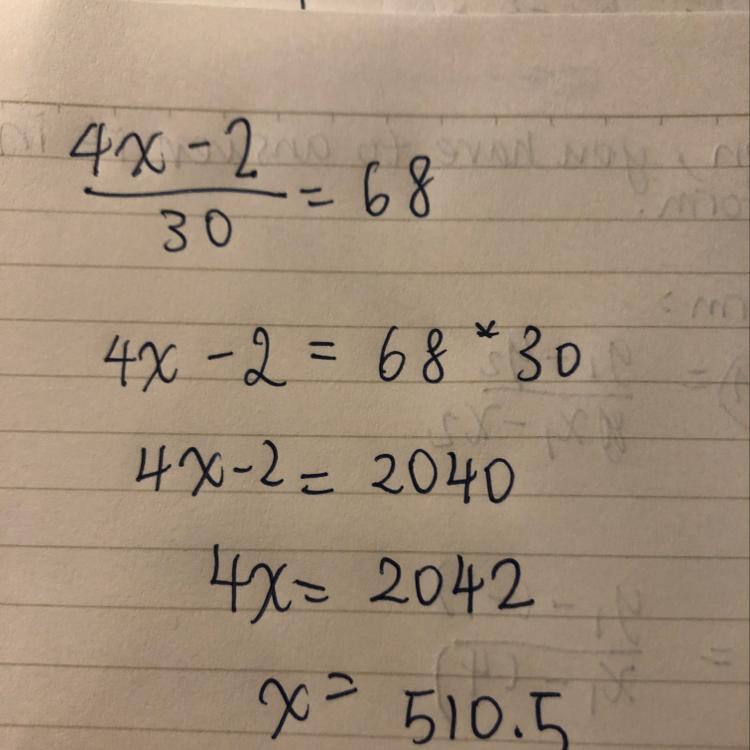 4x-2
30 = 68
4x - 2 = 68 * 30
4x-2 = 2040
4x = 2042
x = 510.5